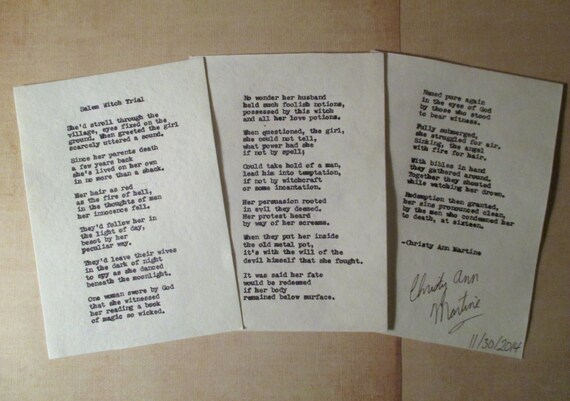 Salem Witch Trial
She'd stroll through the
village, eyes fixed on the
ground. When greeted the girl
scarcely uttered a sound.
Since her parents death
a few years back
she's lived on her own
in no more than a shank.
Her hair as red
as the fire of hell,
in the thoughts of man
her innocence fell.
They'd follow her in
the light of day,
beset by her
peculiar way.
They'd leave their wives
in the dark of night
to spy as she danced
beneath the moonlight.
One woman swore by God
that she witnessed
her reading a book
of magic so wicked.
No wonder her husband
held such foolish notions,
possessed by this witch
and all her love potions.
When questioned, the girl,
she could not tell,
what power had she
if not by spell;
Could take hold of a man,
lead him into temptation,
if not by witchcraft
or some incantation.
Her persuasion rooted
in evil they deemed.
Her protest heard
by way of her screams.
When they put her inside
the old metal pot,
it's with the will of the
devil himself that she fought.
It was said her fate
would be redeemed
if her body
remained below surface.
Named pure again
in the eyes of God
by those who stood
to bear witness.
Fully submerged,
she struggled for air.
Sinking, the angel
with fire for hair.
With bibles in hand
they gathered around.
Together they shouted
while watching her drown.
Redemption than granted,
her sins pronounced clean,
by the men who condemned her
to death, at sixteen.
-Christy Ann Martine
Christy Ann
Martine
11/30/2014